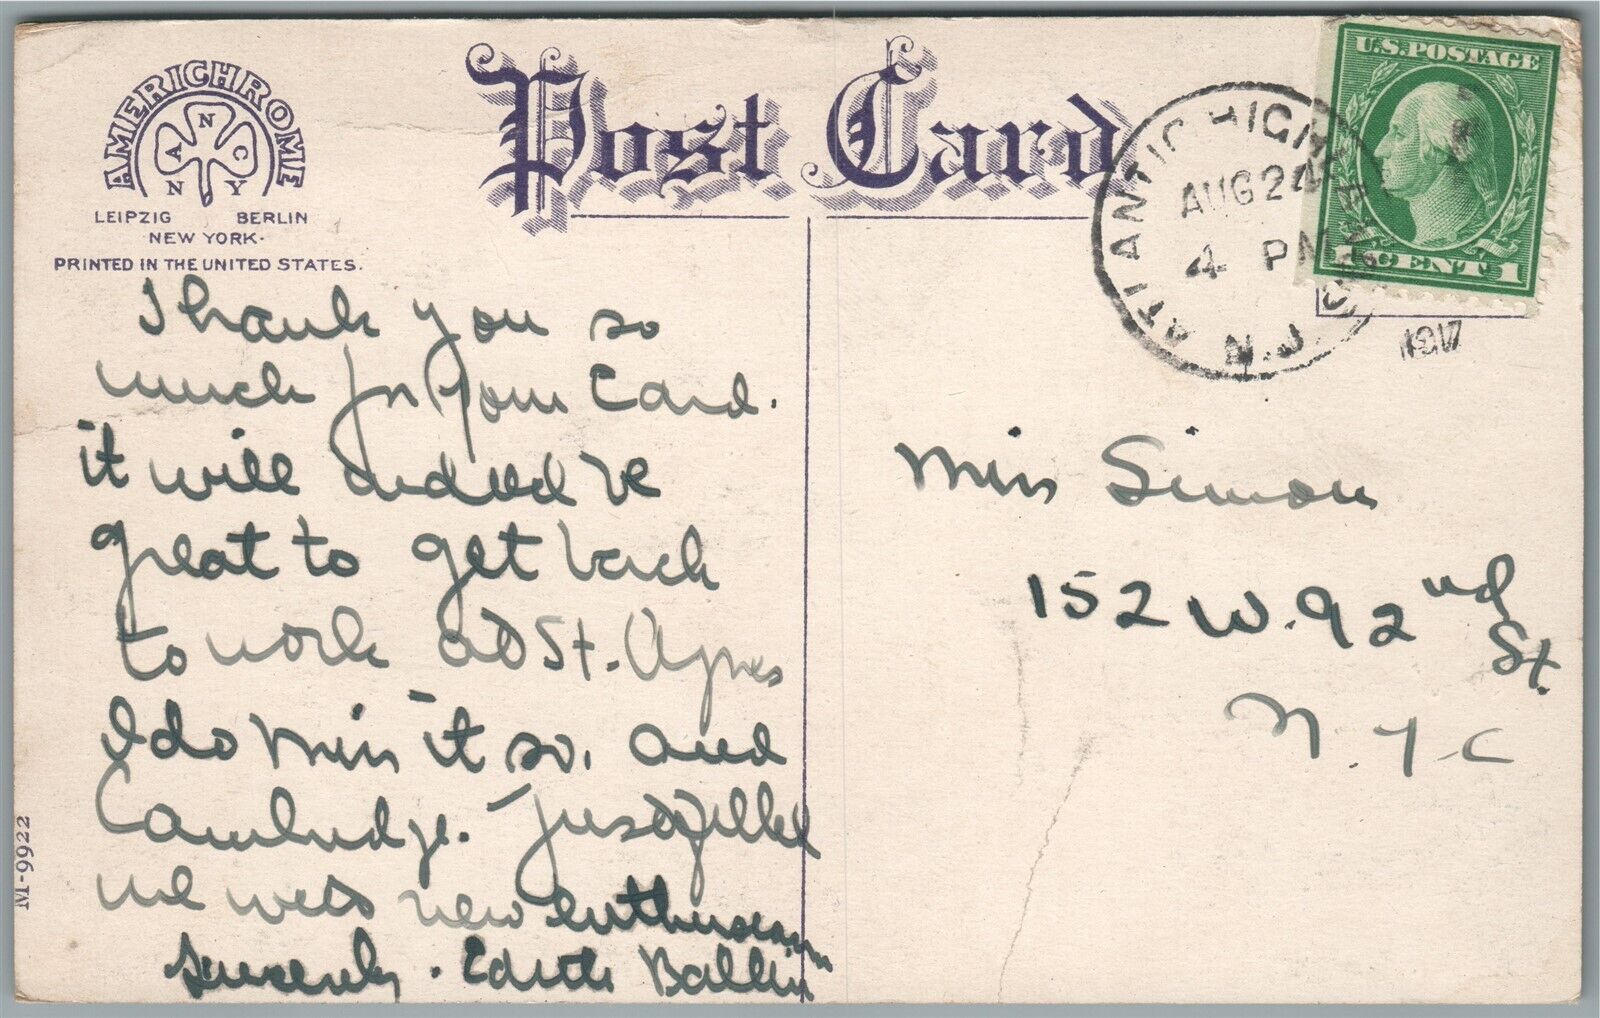 AMERICHROME
A N C N N Y
LEIPZIG BERLIN
NEW YORK.
PRINTED IN THE UNITED STATES.
Post Card
U.S. POSTAGE
1 CENT 1
ATLANTIC HIGHLANDS N.J.
AUG 24
4 PM
1917
Thank you so
much for your Card.
it will indeed be
great to get back
to work at St. Agnes
I do miss it so, and
Cambridge. Just filled
me with new enthusiasm
Sincerely. Edith Ballin
Miss Simon
152 W. 92nd
St.
N.Y.C
M-9922